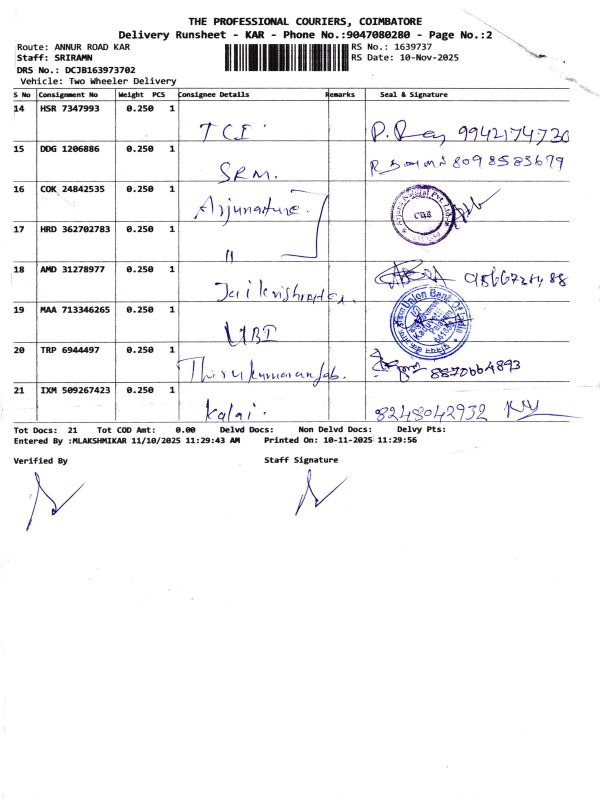 THE PROFESSIONAL COURIERS, COIMBATORE
Delivery Runsheet - KAR - Phone No.:9047080280 - Page No.:2
Route: ANNUR ROAD KAR RS No.: 1639737
Staff: SRIRAMN RS Date: 10-Nov-2025
DRS No.: DCJB163973702
Vehicle: Two Wheeler Delivery
S No Consignment No Weight PCS Consignee Details Remarks Seal & Signature
14 HSR 7347993 0.250 1
TCI P. Raj 9942174730
15 DDG 1206886 0.250 1
SRM. 8098583679
16 COK 24842535 0.250 1
CBS
17 HRD 362702783 0.250 1
"
18 AMD 31278977 0.250 1
19 MAA 713346265 0.250 1
UBI Union Bank Of India
20 TRP 6944497 0.250 1
Thirukumaran Lab. 8870664893
21 IXM 509267423 0.250 1
Kalai. 8248042932
Tot Docs: 21 Tot COD Amt: 0.00 Delvd Docs: Non Delvd Docs: Delvy Pts:
Entered By :MLAKSHMIKAR 11/10/2025 11:29:43 AM Printed On: 10-11-2025 11:29:56
Verified By Staff Signature